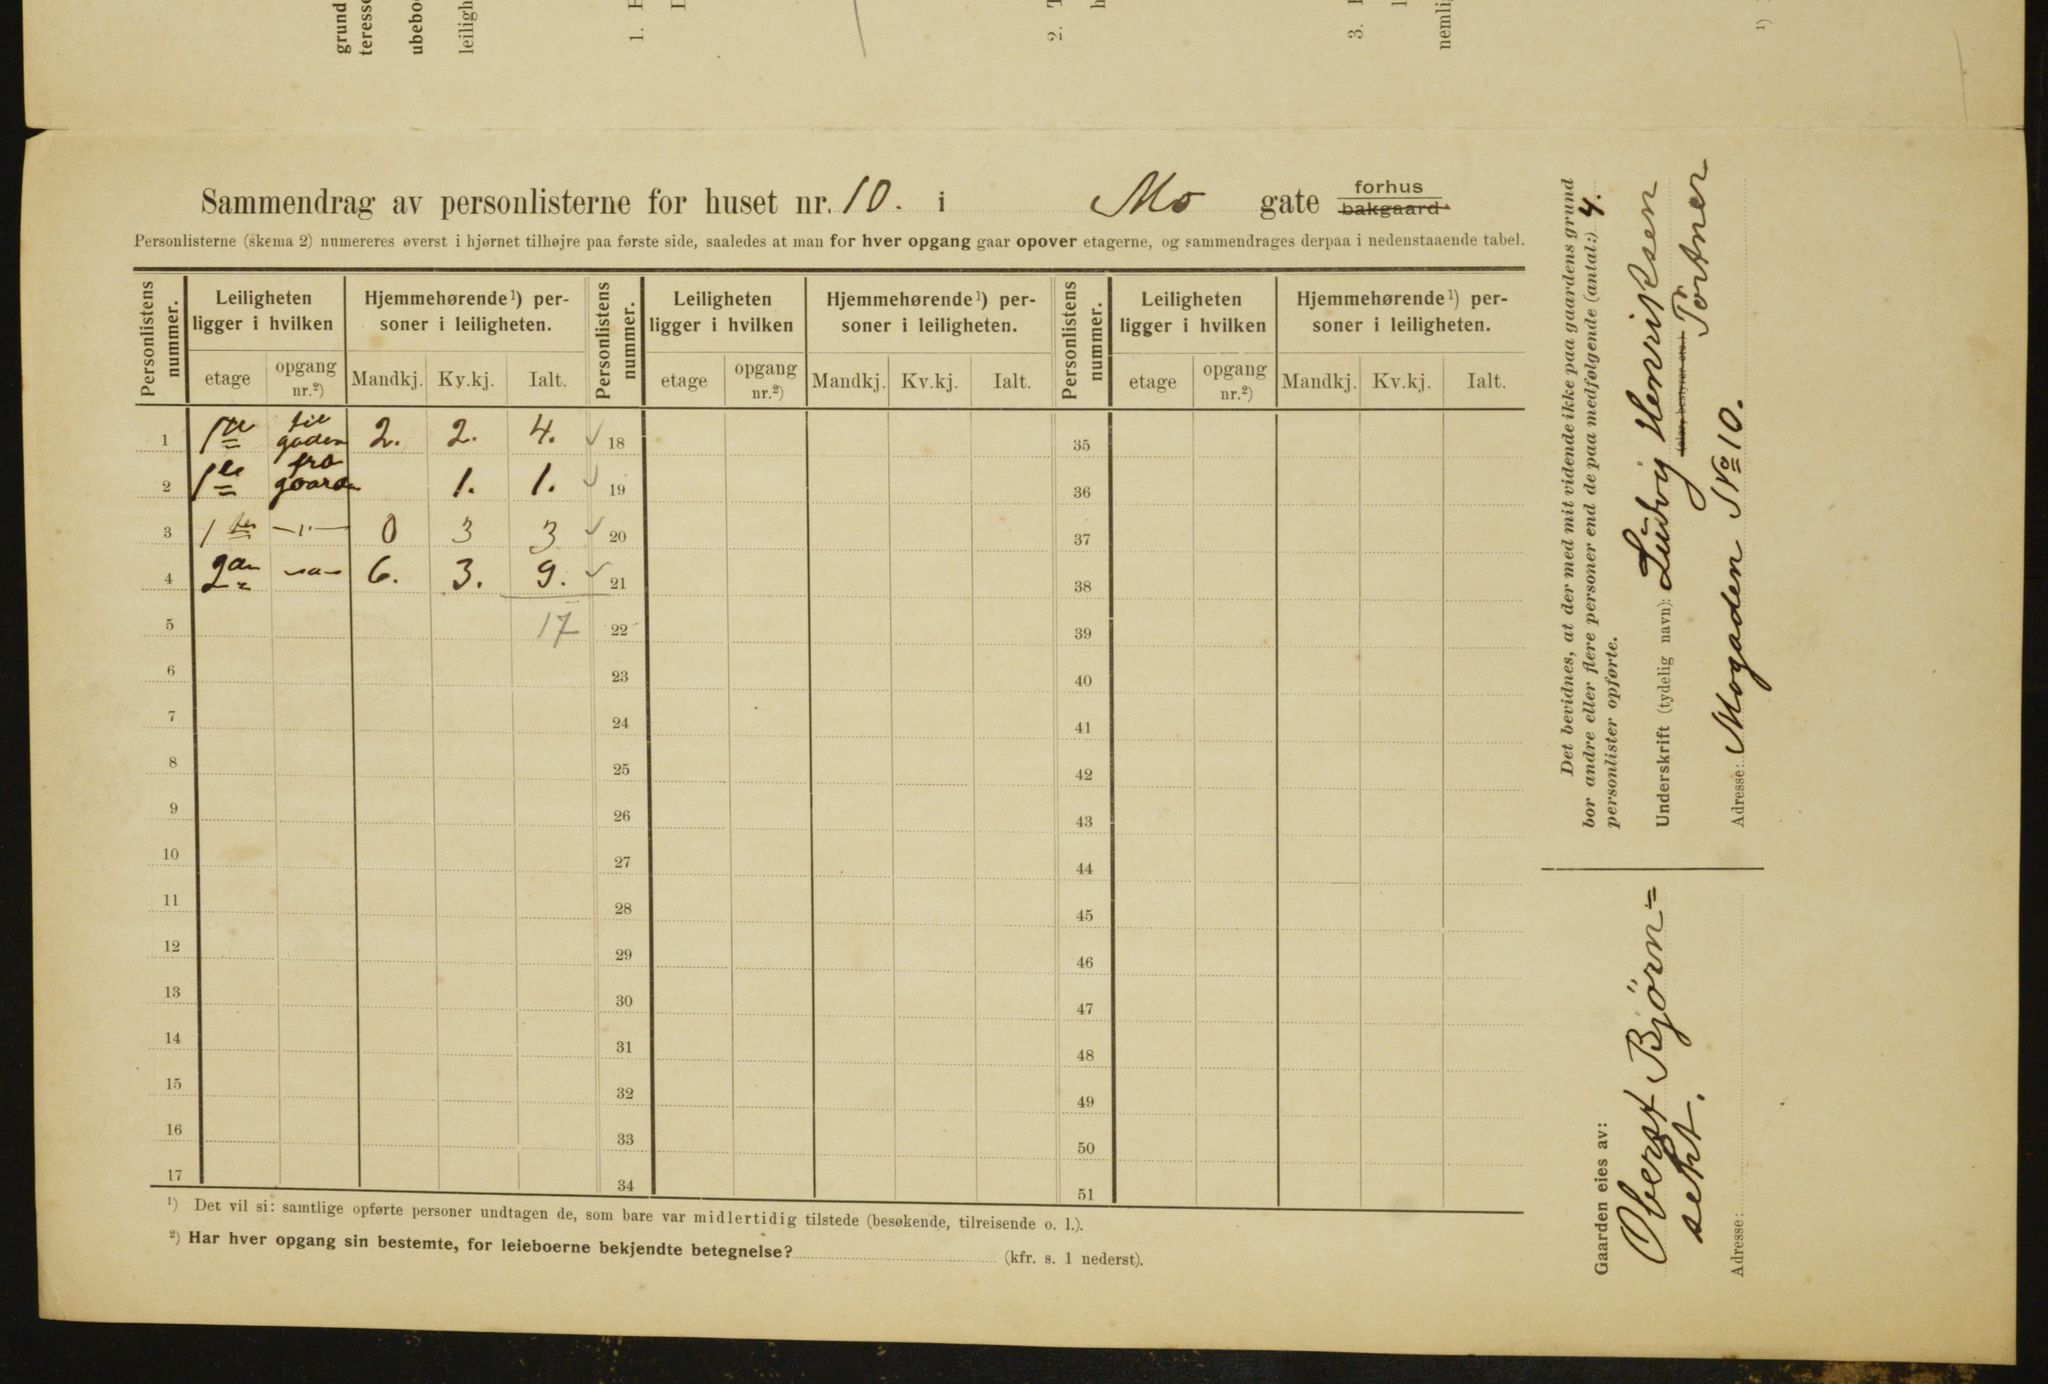 grund
teresse
ubebo
leiligh
1.
2.
3.
nemli
1)
Sammendrag av personlisterne for huset nr. 10. i Mo gate forhus
bakgaard
Personlisterne (skema 2) nummereres øverst i hjørnet tilhøjre paa første side, saaledes at man for hver opgang gaar opover etagerne, og sammendrages derpaa i nedenstaaende tabel.
Personlistens nummer. Leiligheten ligger i hvilken Hjemmehørende ¹) personer i leiligheten. Personlistens nummer. Leiligheten ligger i hvilken Hjemmehørende ¹) personer i leiligheten. Personlistens nummer. Leiligheten ligger i hvilken Hjemmehørende ¹) personer i leiligheten.
etage opgang nr.²) Mandkj. Kv.kj. Ialt. etage opgang nr.²) Mandkj. Kv.kj. Ialt. etage opgang nr.²) Mandkj. Kv.kj. Ialt.
1 1ste til gaden 2. 2. 4. ✓ 18 35
2 1ste fra gaarden 1. 1. ✓ 19 36
3 1ste —"— 0 3 3 ✓ 20 37
4 2den —"— 6. 3. 9. ✓ 21 38
5 17 22 39
6 23 40
7 24 41
8 25 42
9 26 43
10 27 44
11 28 45
12 29 46
13 30 47
14 31 48
15 32 49
16 33 50
17 34 51
¹) Det vil si: samtlige opførte personer undtagen de, som bare var midlertidig tilstede (besøkende, tilreisende o. l.).
²) Har hver opgang sin bestemte, for leieboerne bekjendte betegnelse? (kfr. s. 1 nederst).
Det bevidnes, at der med mit vidende ikke paa gaardens grund
bor andre eller flere personer end de paa medfølgende (antal:) 4.
personlister opførte.
Underskrift (tydelig navn): Ludvig Henriksen
(eier, bestyrer etc.) Portner
Adresse: Mogaden No 10.
Gaarden eies av:
Oberst Bjørn=
seht.
Adresse: